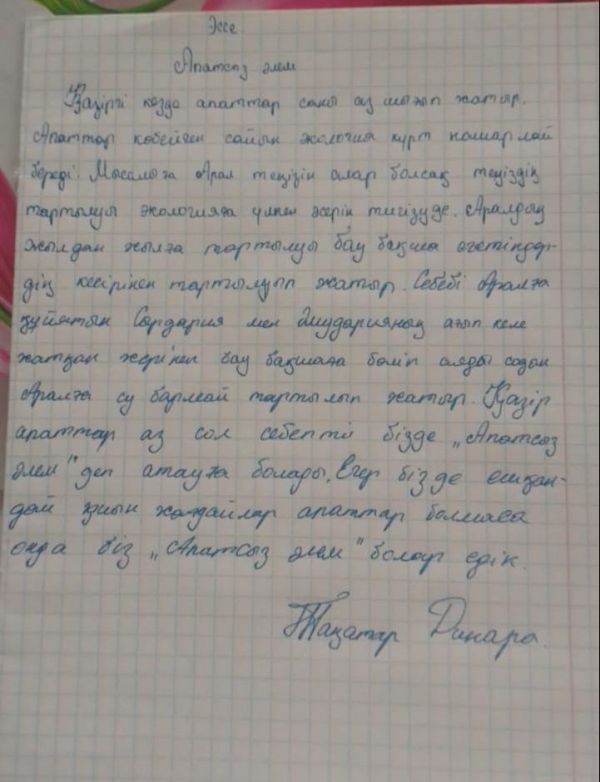 Эссе
Апатсыз әлем
Қазіргі кезде апаттар саны аз шығып жатыр.
Апаттар көбейген сайын экология күрт нашарлай
береді. Мысалыға Арал теңізін алар болсақ теңіздің
тартылуы экологияға үлкен әсерін тигізуде. Аралдың
жылдан жылға тартылуы бау бақша егетіндер-
дің кесірінен тартылып жатыр. Себебі Аралға
құйятын Сырдария мен Әмударияның ағып келе
жатқан жерінен бау бақшаға бөліп алады содан
Аралға су бармай тартылып жатыр. Қазір
апаттар аз сол себепті бізде „Апатсыз
әлем" деп атауға болады. Егер бізде ешқан-
дай қиын жағдайлар апаттар болмаса
онда біз „Апатсыз әлем" болар едік.
Тақатар Динара.